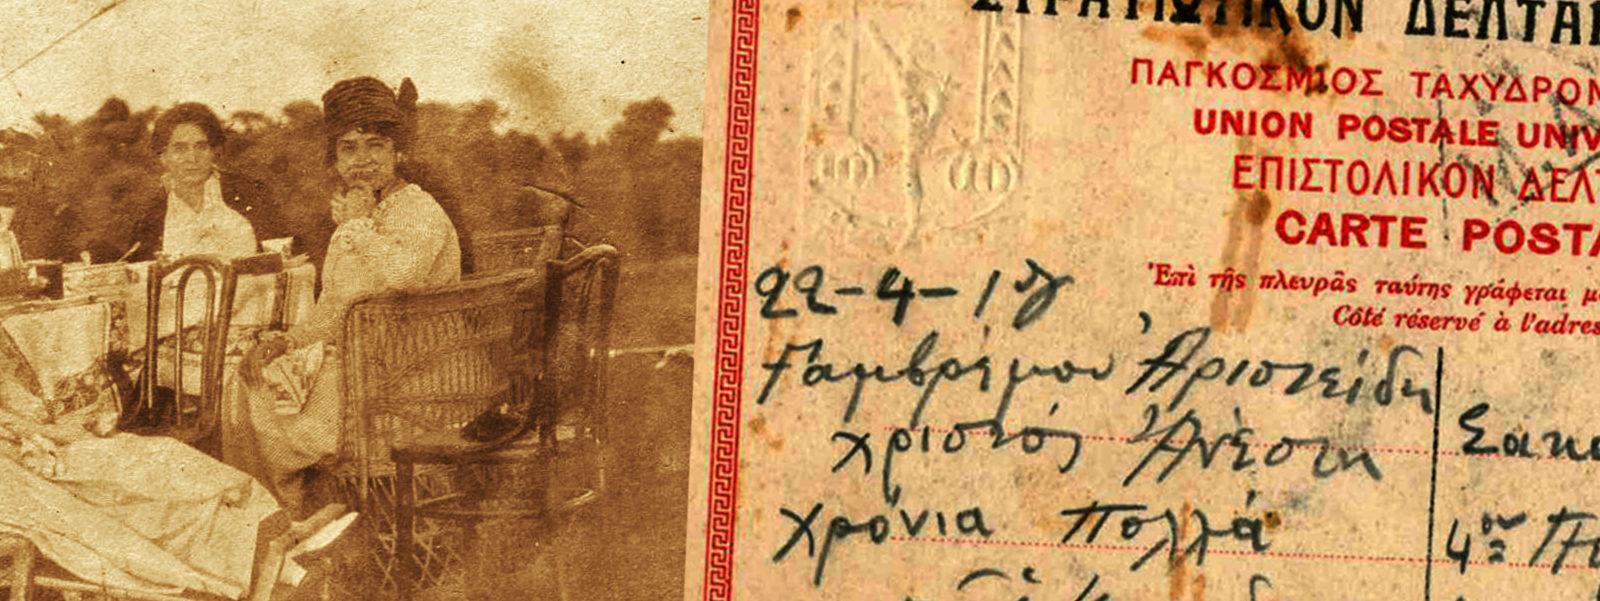 ΣΤΡΑΤΙΩΤΙΚΟΝ ΔΕΛΤΑΡ
ΠΑΓΚΟΣΜΙΟΣ ΤΑΧΥΔΡΟΝ
UNION POSTALE UNIV
ΕΠΙΣΤΟΛΙΚΟΝ ΔΕΛΤ
CARTE POSTA
Ἐπὶ τῆς πλευρᾶς ταύτης γράφεται μ
Côté réservé à l'adres
22-4-1
Γαμβρέ μου Ἀριστείδη
Χριστός Ἀνέστη
Χρόνια Πολλά
Σακ
4ον